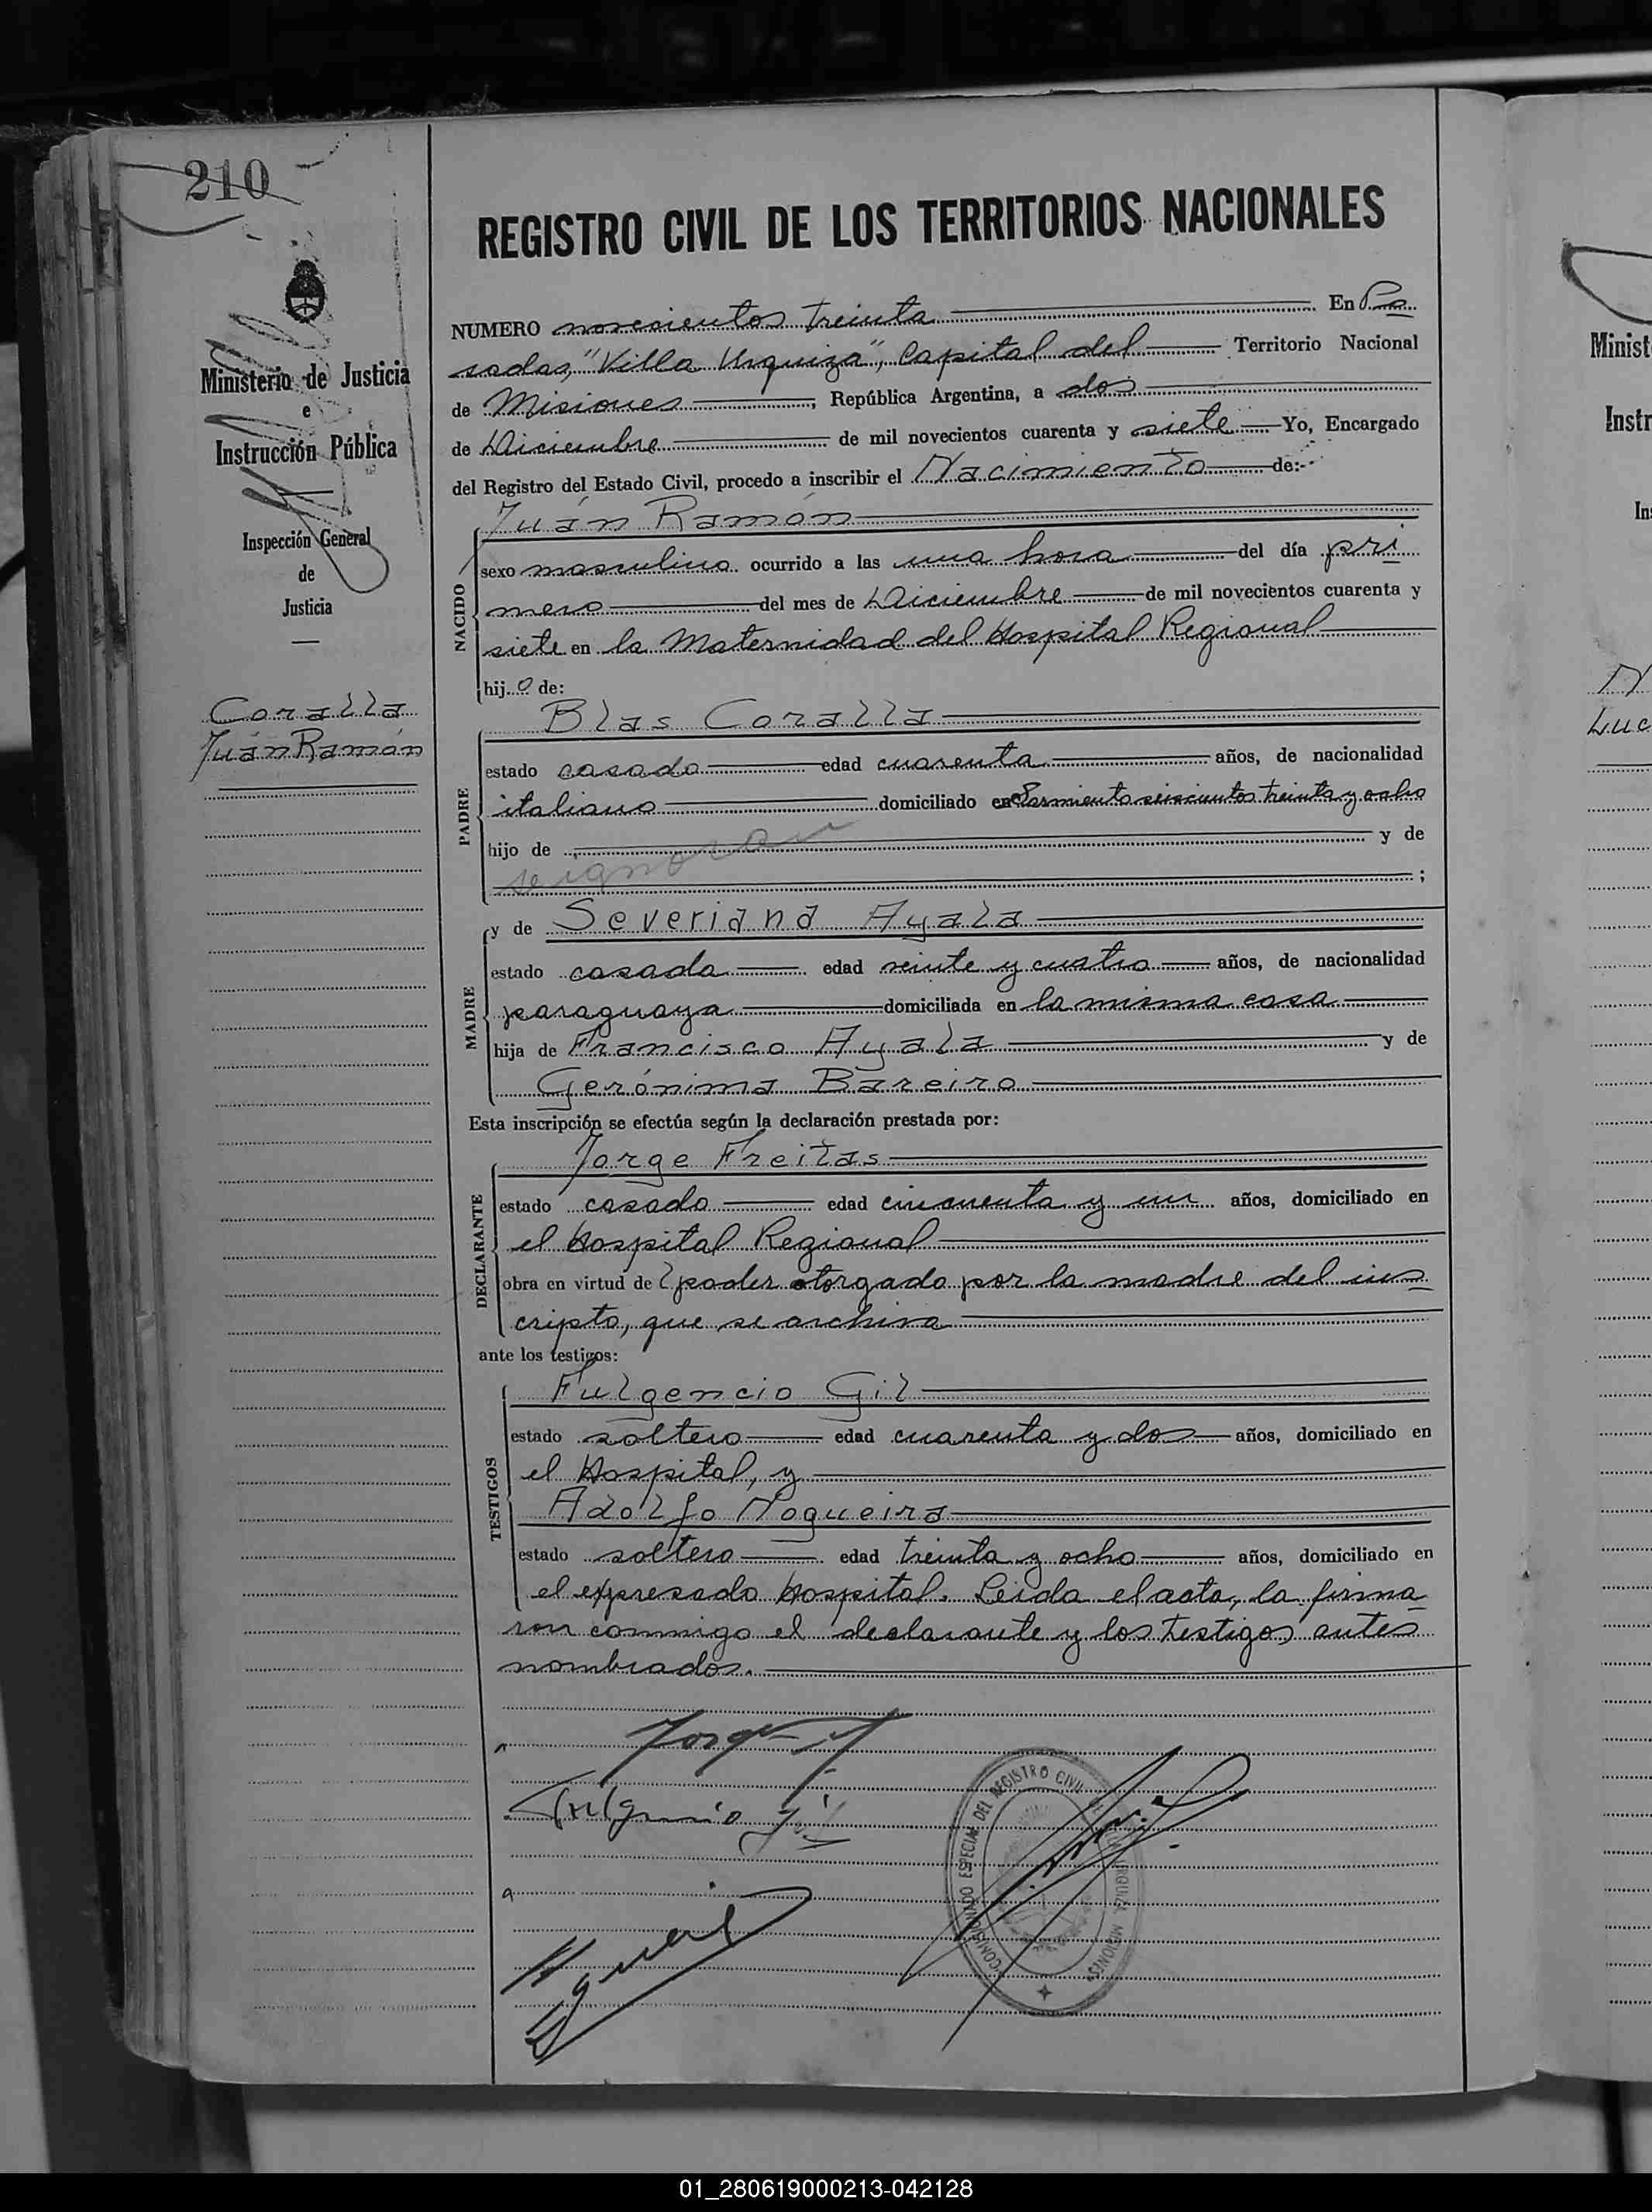 210
REGISTRO CIVIL DE LOS TERRITORIOS NACIONALES
Ministerio de Justicia
e
Instrucción Pública
Inspección General
de
Justicia
Coralla
Juán Ramón
NUMERO novecientos treinta En Po
sadas, "Villa Urquiza", Capital del Territorio Nacional
de Misiones, República Argentina, a dos
de Diciembre de mil novecientos cuarenta y siete Yo, Encargado
del Registro del Estado Civil, procedo a inscribir el Nacimiento de:-
NACIDO
Juán Ramón
sexo masculino ocurrido a las una hora del día pri
mero del mes de Diciembre de mil novecientos cuarenta y
siete en la Maternidad del Hospital Regional
hijo de:
PADRE
Blas Coralla
estado casado edad cuarenta años, de nacionalidad
italiano domiciliado en Sarmiento seiscientos treinta y ocho
hijo de y de
se ignoran ;
MADRE
y de Severiana Ayala
estado casada edad veinte y cuatro años, de nacionalidad
paraguaya domiciliada en la misma casa
hija de Francisco Ayala y de
Gerónima Bareiro
Esta inscripción se efectúa según la declaración prestada por:
DECLARANTE
Jorge Freitas
estado casado edad cincuenta y un años, domiciliado en
el Hospital Regional
obra en virtud de poder otorgado por la madre del ins
cripto, que se archiva
ante los testigos:
TESTIGOS
Fulgencio Gil
estado soltero edad cuarenta y dos años, domiciliado en
el Hospital, y
Adolfo Nogueira
estado soltero edad treinta y ocho años, domiciliado en
el expresado Hospital. Leida el acta, la firma
ron conmigo el declarante y los testigos antes
nombrados.
Jorge
Fulgencio Gil
COMISIONADO ESPECIAL DEL REGISTRO CIVIL URQUIZA MISIONES
Minist
Instr
In
N
Luc
01_280619000213-042128